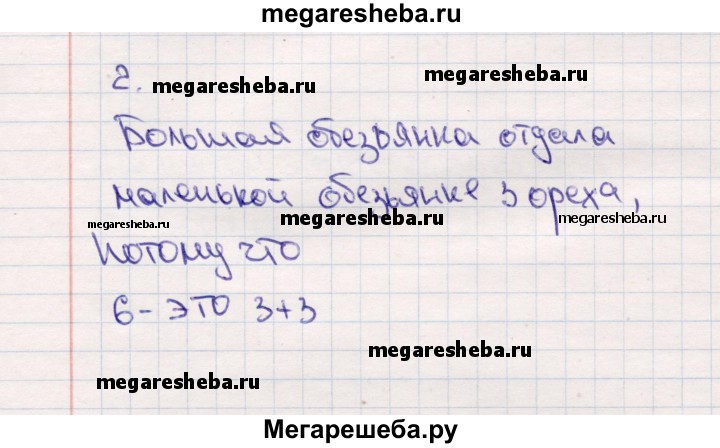 megaresheba.ru
2.
megaresheba.ru
megaresheba.ru
Большая обезьянка отдала
маленькой обезьянке 3 ореха,
megaresheba.ru
megaresheba.ru
megaresheba.ru
Потому что
6 - это 3+3
megaresheba.ru
megaresheba.ru
Мегарешеба.ру